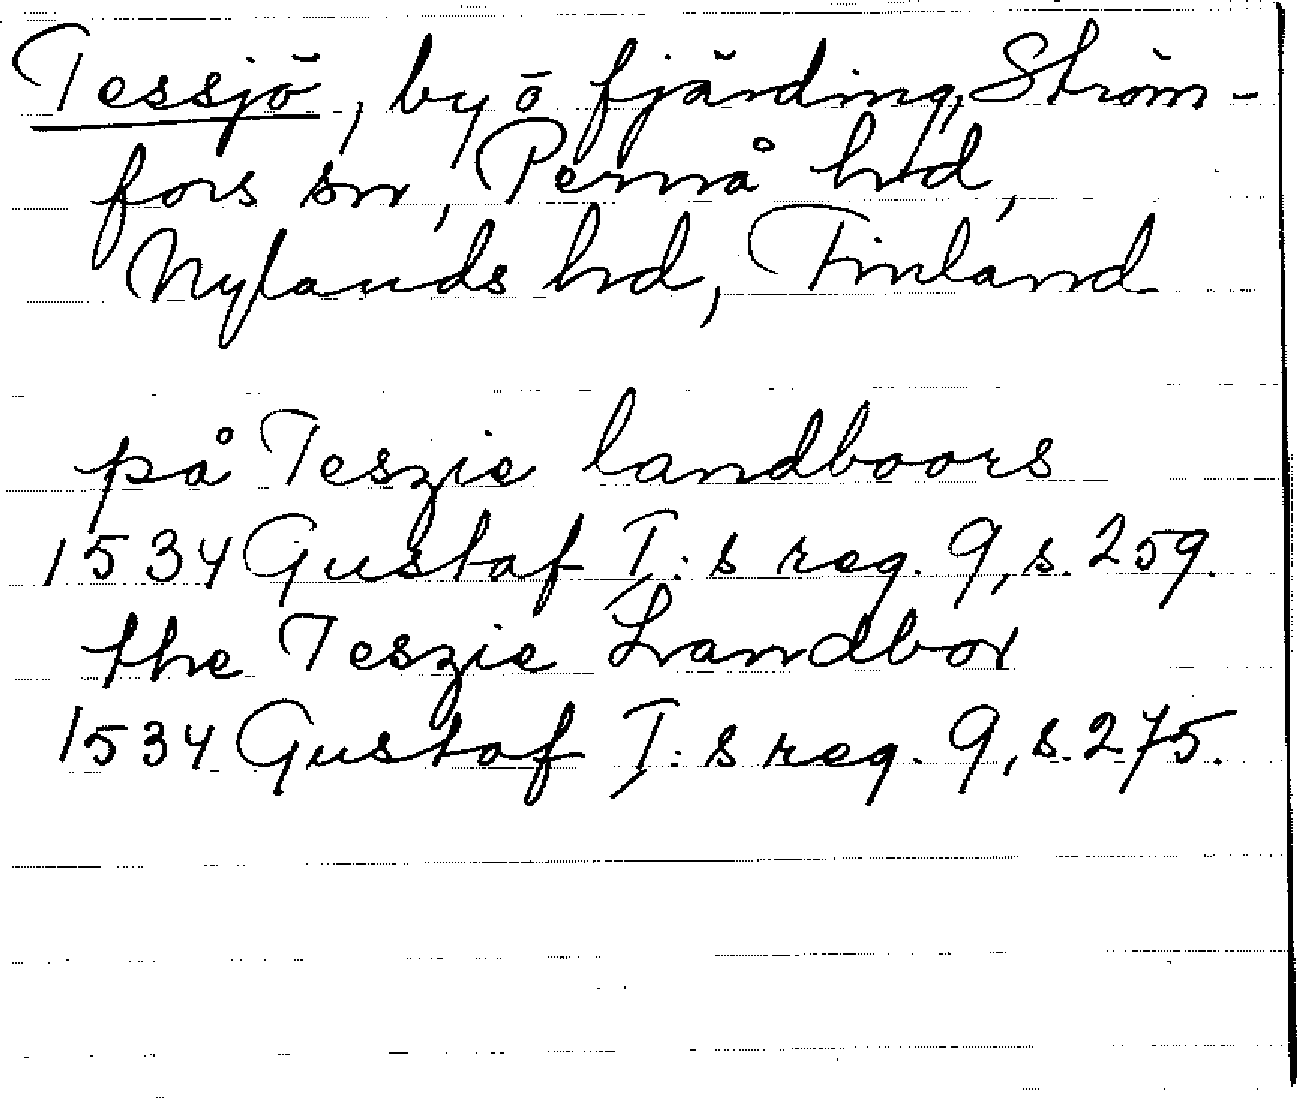 Tessjö, by ö fjärding, Ström-
fors sn, Pernå hrd,
Nylands hrd, Finland
på Teszie landboors
1534 Gustaf I:s reg. 9, s. 259.
the Teszie Landbor
1534 Gustaf I:s reg. 9, s. 275.